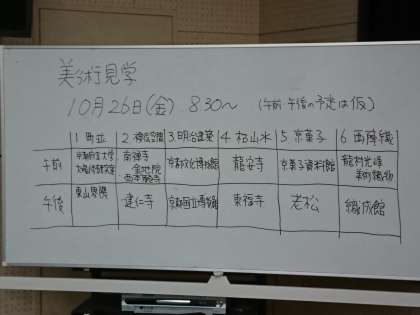 美術見学
10月26日(金) 8:30〜 (午前・午後の予定は仮)
1 町並 2 禅院空間 3 明治建築 4 枯山水 5 京菓子 6 西陣織
午前 京都市立大学 南禅寺 金地院 西本願寺 京都文化博物館 龍安寺 京菓子資料館 龍村光峯 美術織物
午後 東山界隈 建仁寺 京都国立博物館 東福寺 老松 織成館